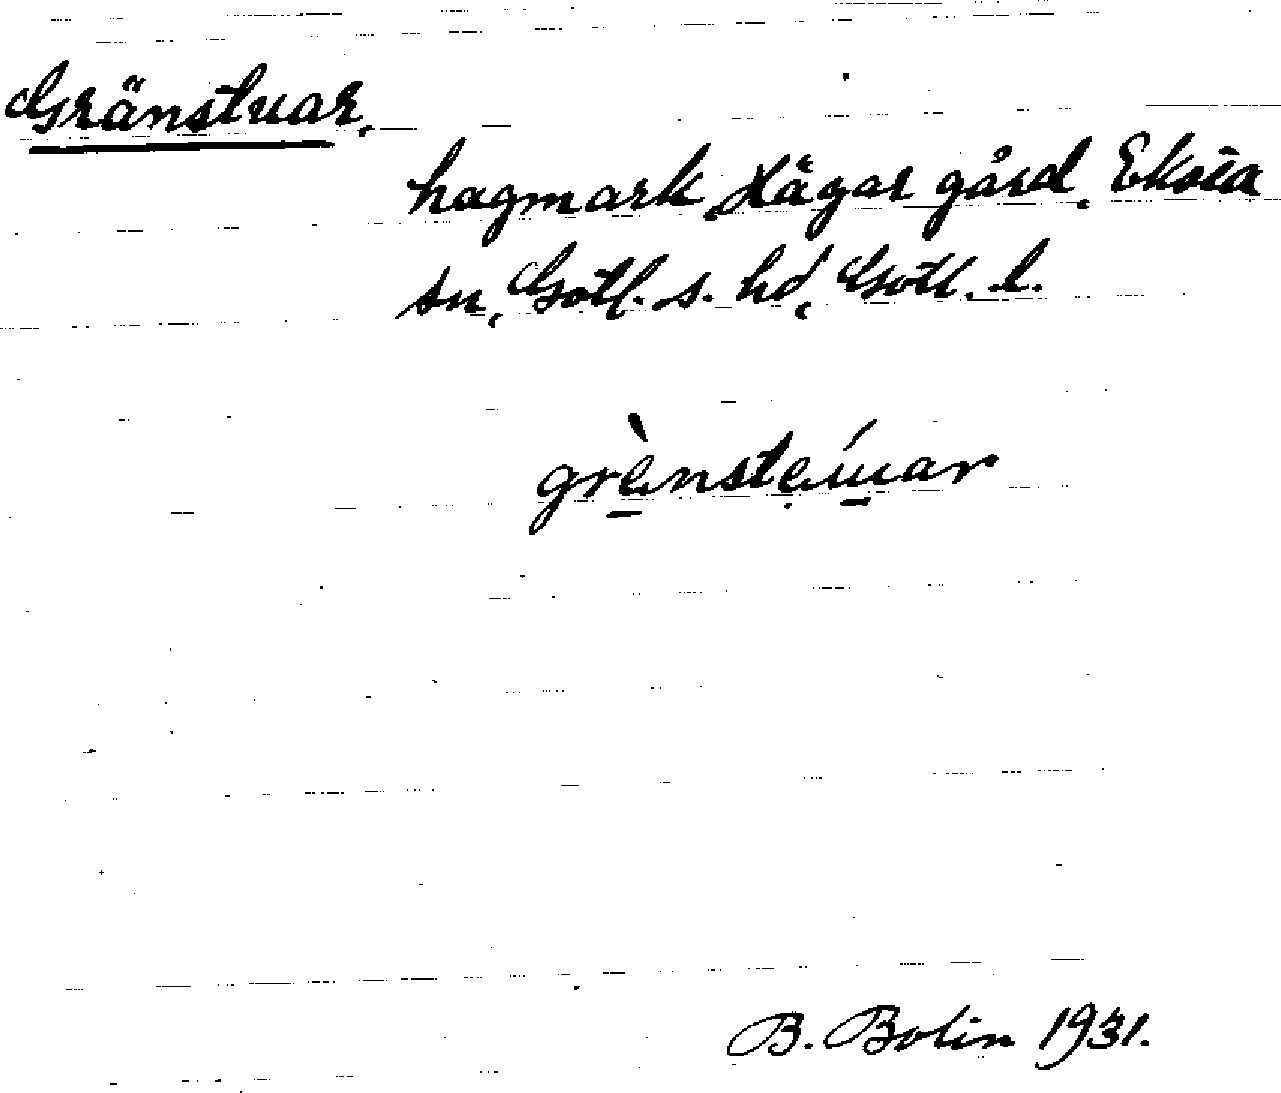 Gränstuar,
hagmark, Hägar gård, Eksta
sn, Gotl. s. hd, Gotl. l.
grènsteúar
B. Bolin 1931.